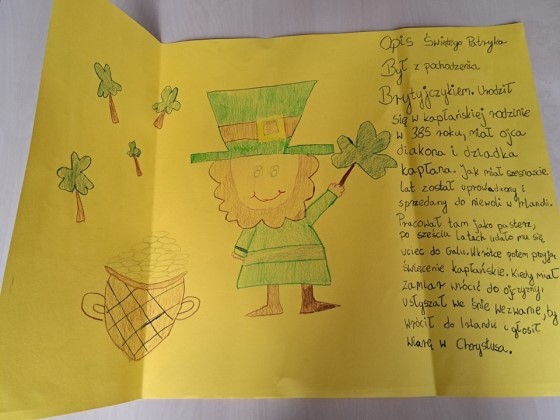 Opis Świętego Patryka
Był z pochodzenia
Brytyjczykiem. Urodził
się w kapłańskiej rodzinie
w 385 roku, miał ojca
diakona i dziadka
kapłana. Jak miał szesnaście
lat został uprowadzony i
sprzedany do niewoli w Irlandi.
Pracował tam jako pasterz,
po sześciu latach udało mu się
uciec do Galii. Wkrótce potem przyjął
święcenie kapłańskie. Kiedy miał
zamiar wrócić do ojczyzny
usłyszał we śnie wezwanie, by
wrócił do Irlandii i głosił
wiarę w Chrystusa.